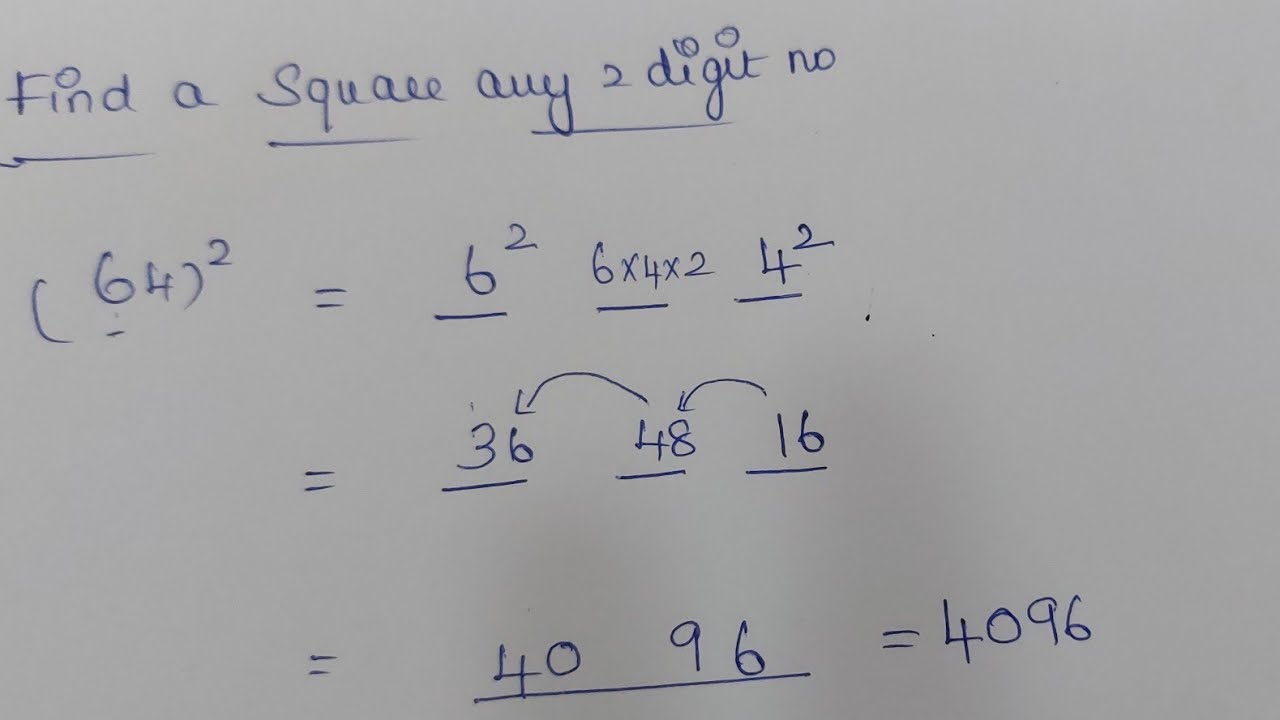 Find a Square any 2 digit no
(64)² = 6² 6×4×2 4²
= 36 48 16
= 40 96 = 4096